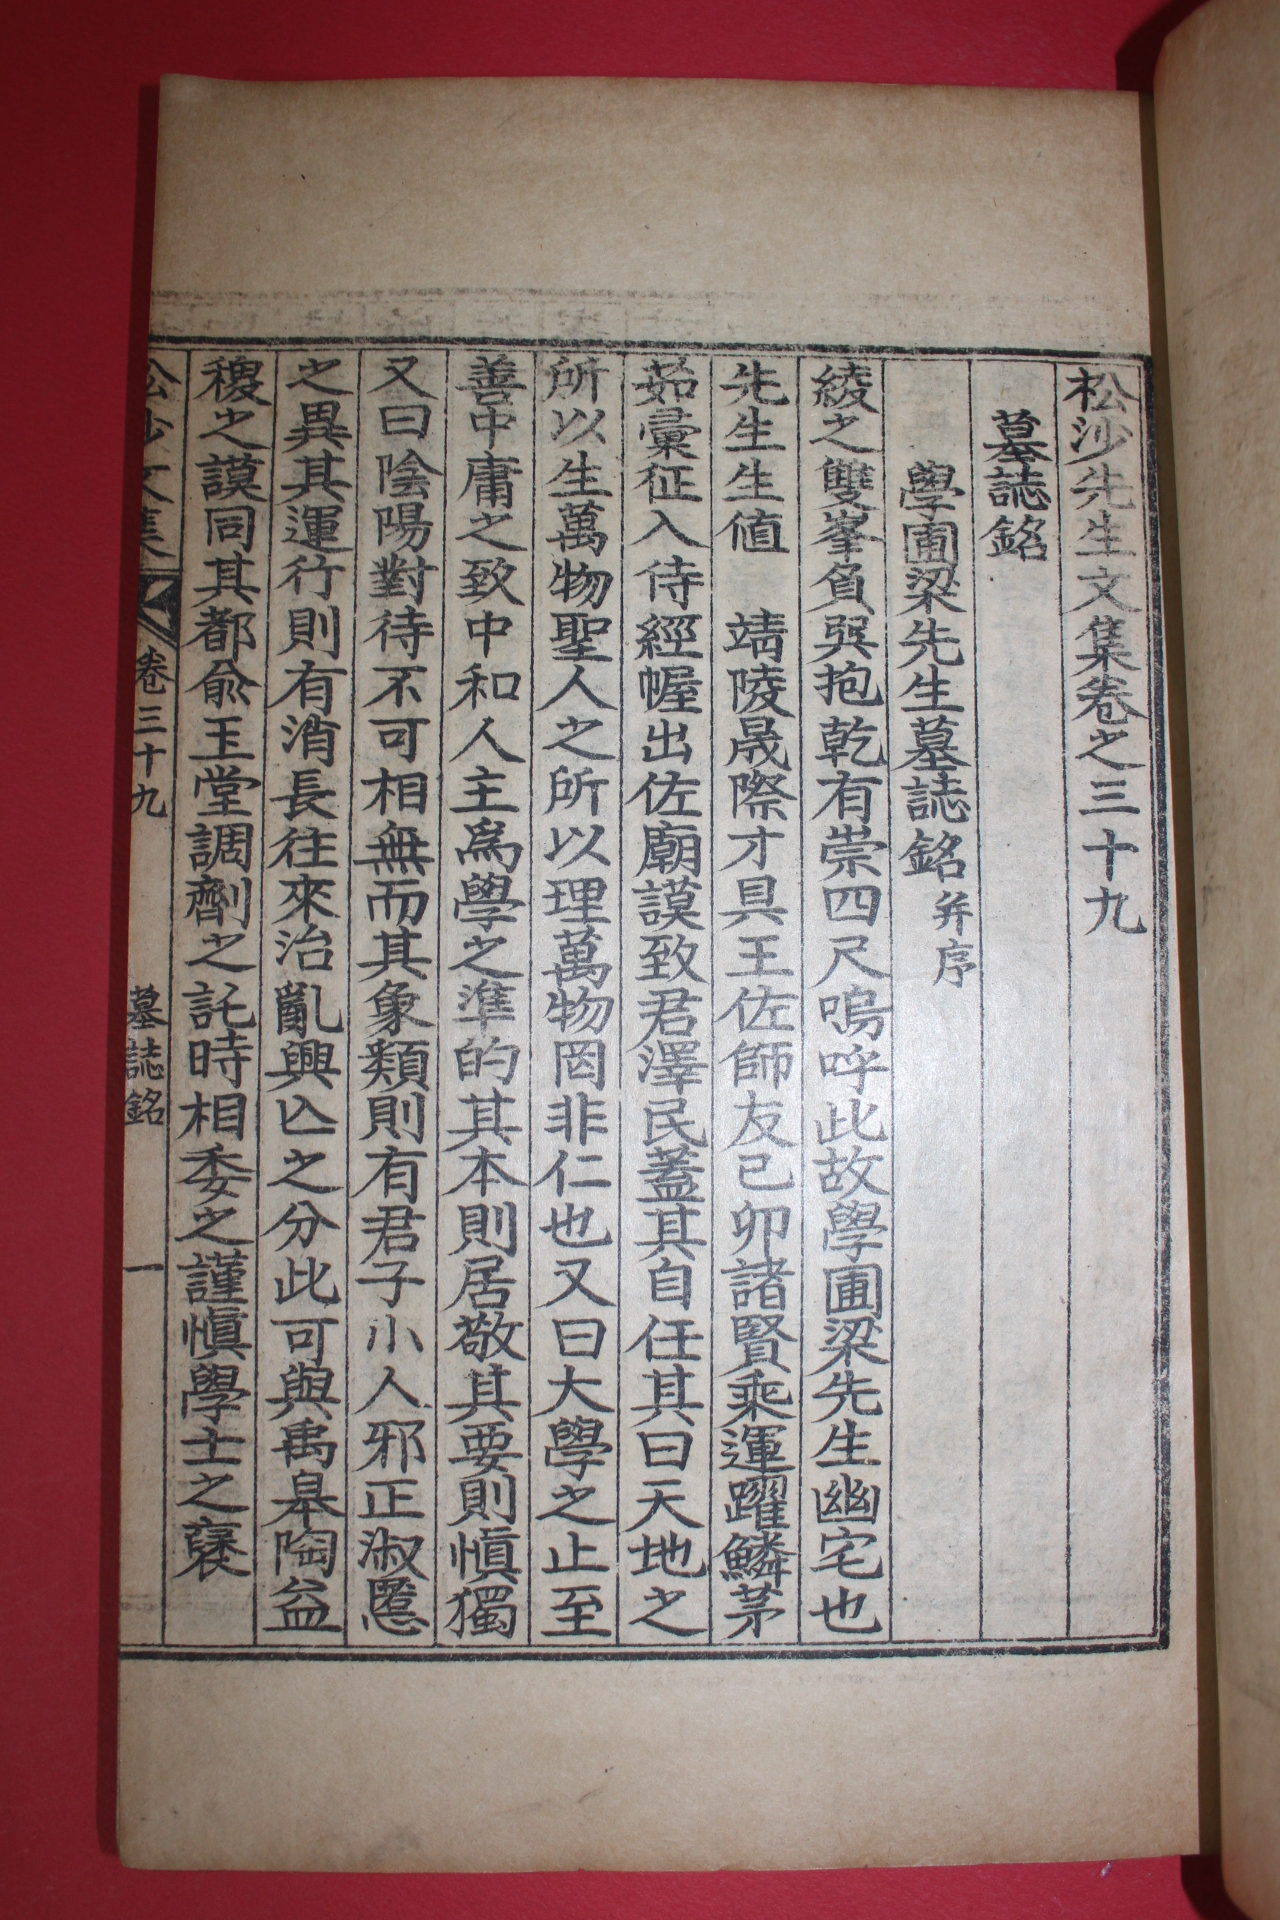 松沙先生文集卷之三十九
墓誌銘
學圃梁先生墓誌銘 幷序
綾之雙峯負巽抱乾有崇四尺嗚呼此故學圃梁先生幽宅也
先生生値 靖陵晟際才具王佐師友己卯諸賢乘運躍鱗茅
茹彙征入侍經幄出佐廟謨致君澤民蓋其自任其曰天地之
所以生萬物聖人之所以理萬物罔非仁也又曰大學之止至
善中庸之致中和人主爲學之準的其本則居敬其要則愼獨
又曰陰陽對待不可相無而其象類則有君子小人邪正淑慝
之異其運行則有消長往來治亂興亾之分此可與禹皋陶益
稷之謨同其都兪玉堂調劑之託時相委之謹愼學士之褒
松沙文集 卷三十九 墓誌銘 一